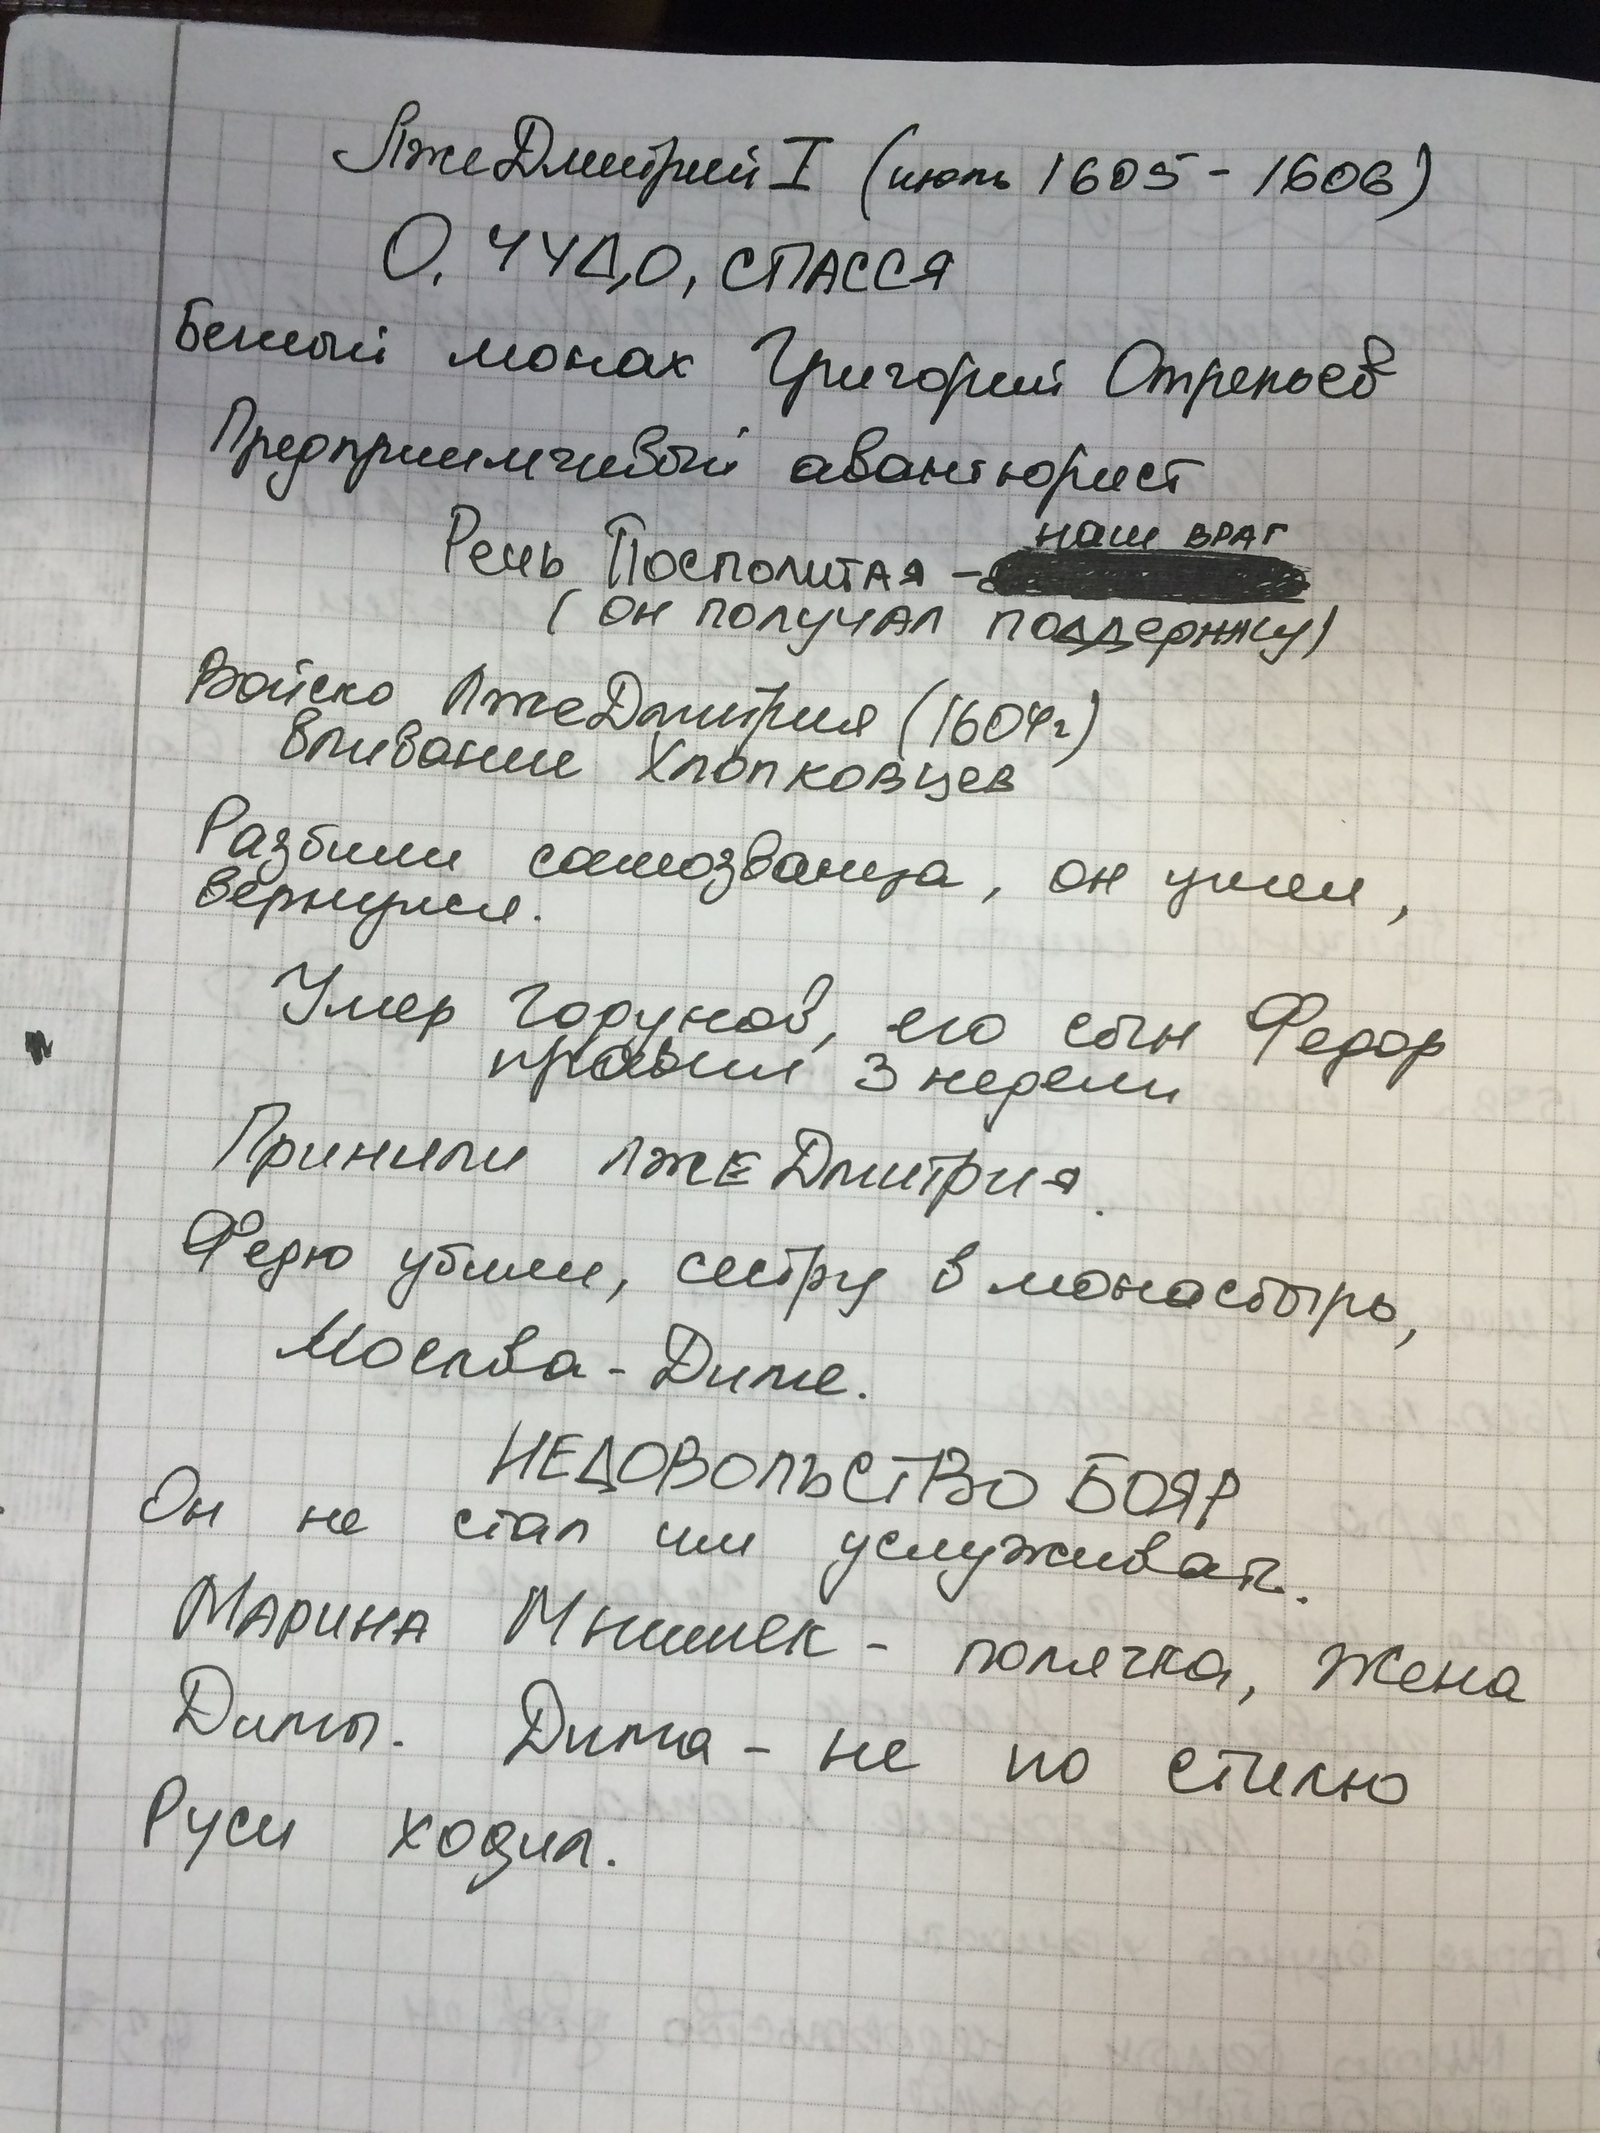 ЛжеДмитрий I (июль 1605 - 1606)
О, ЧУДО, СПАССЯ
Беглый монах Григорий Отрепьев
Предприимчивый авантюрист
наш враг
Речь Посполитая -
(он получал поддержку)
Войско ЛжеДмитрия (1604г)
Вливание Хлопковцев
Разбили самозванца, он ушел,
вернулся.
Умер Годунов, его сын Федор
правил 3 недели
Приняли лжеДмитрия.
Федю убили, сестру в монастырь,
Москва - Диме.
НЕДОВОЛЬСТВО БОЯР
Он не стал им услуживать.
Марина Мнишек - полячка, жена
Димы. Дима - не по стилю
Руси ходил.